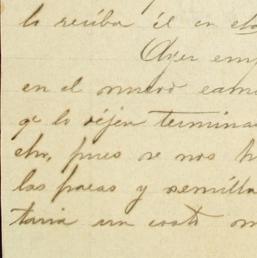 lo reciba él en el
Ayer emp
en el nuevo cam
q lo dejen termina
etc, pues se nos h
las pacas y semilla
taria un costo m